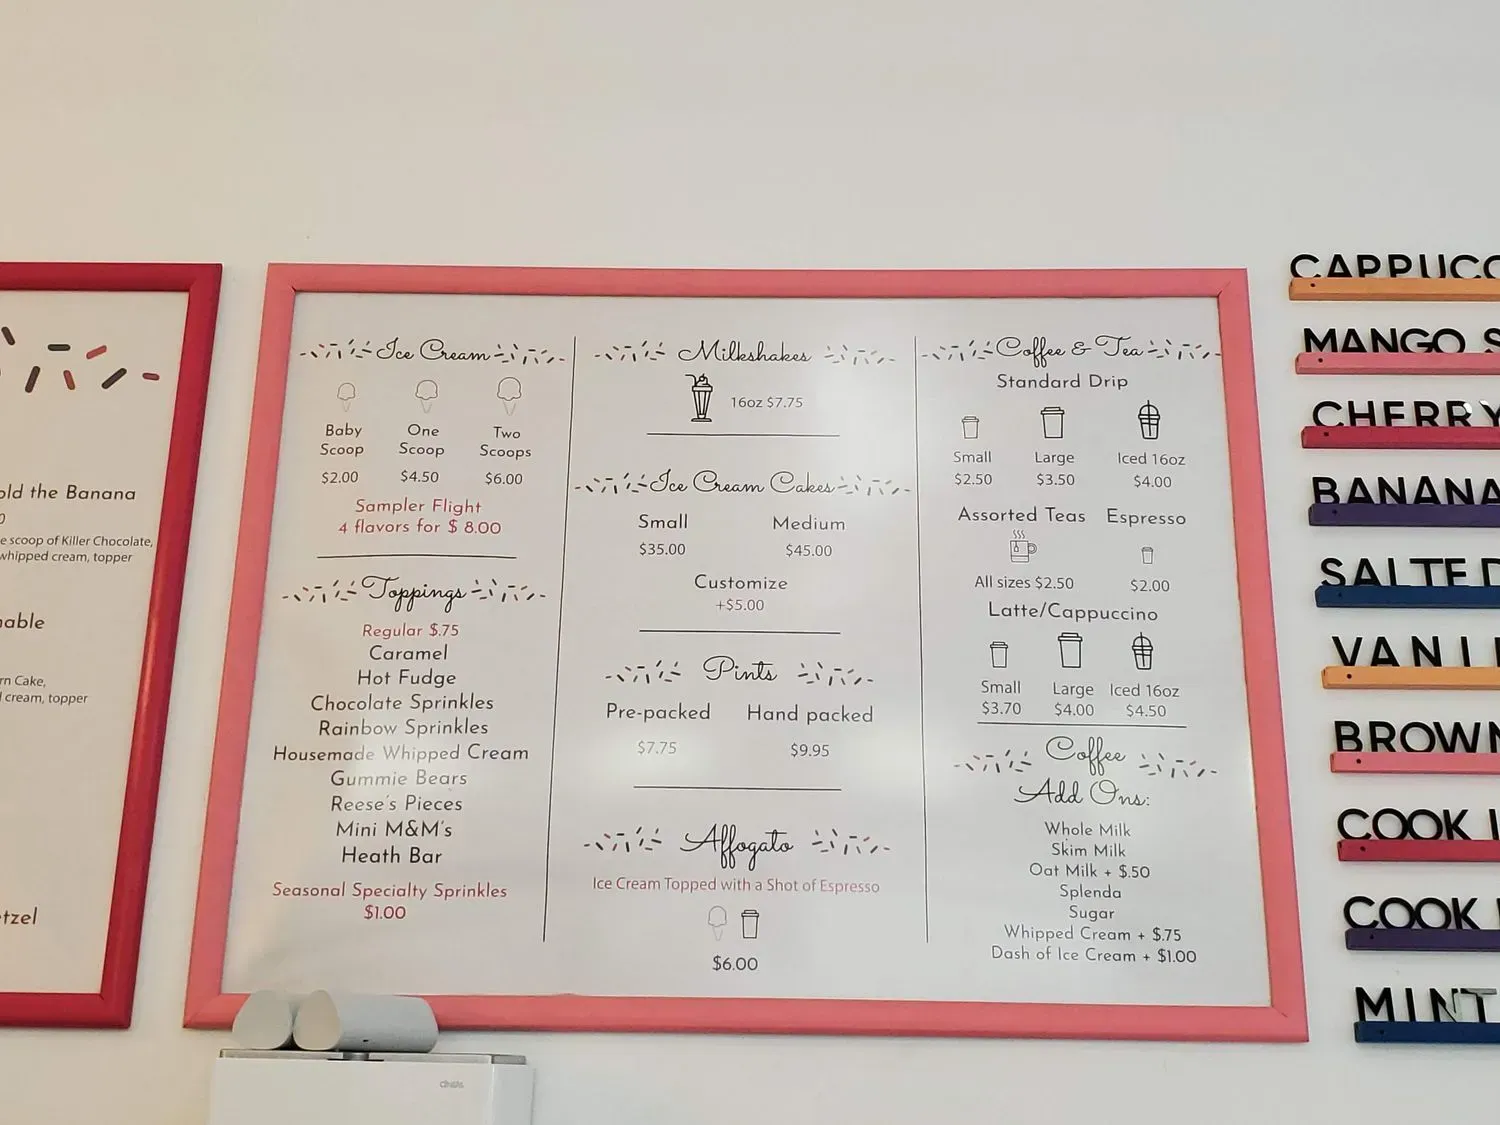 old the Banana
e scoop of Killer Chocolate,
whipped cream, topper
rn Cake,
cream, topper
Ice Cream
Baby Scoop
$2.00
One Scoop
$4.50
Two Scoops
$6.00
Sampler Flight
4 flavors for $ 8.00
Toppings
Regular $.75
Caramel
Hot Fudge
Chocolate Sprinkles
Rainbow Sprinkles
Housemade Whipped Cream
Gummie Bears
Reese's Pieces
Mini M&M's
Heath Bar
Seasonal Specialty Sprinkles
$1.00
Milkshakes
16oz $7.75
Ice Cream Cakes
Small
$35.00
Medium
$45.00
Customize
+$5.00
Pints
Pre-packed
$7.75
Hand packed
$9.95
Affogato
Ice Cream Topped with a Shot of Espresso
$6.00
Coffee & Tea
Standard Drip
Small
$2.50
Large
$3.50
Iced 16oz
$4.00
Assorted Teas
All sizes $2.50
Espresso
$2.00
Latte/Cappuccino
Small
$3.70
Large
$4.00
Iced 16oz
$4.50
Coffee
Add Ons:
Whole Milk
Skim Milk
Oat Milk + $.50
Splenda
Sugar
Whipped Cream + $.75
Dash of Ice Cream + $1.00
CAPPUCC
MANGO S
CHERRY
BANANA
SALTED
VANI
BROWN
COOK
COOK
MINT